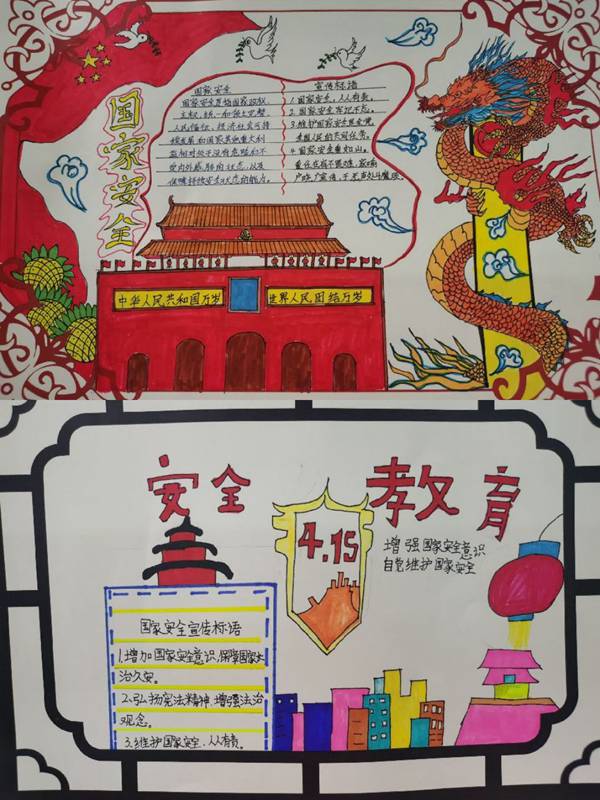 国家安全
国家安全
国家安全是指国家政权、
主权、统一和领土完整、
人民福祉、经济社会可持
续发展和国家其他重大利
益相对处于没有危险和不
受内外威胁的状态，以及
保障持续安全状态的能力。
宣传标语
1.国家安全，人人有责。
2.国家安全牢记不忘。
3.维护国家安全是全党
全国人民的共同任务。
4.国家安全重如山。
中华人民共和国万岁
世界人民团结万岁
安全
教育
4.15
增强国家安全意识
自觉维护国家安全
国家安全宣传标语
1.增加国家安全意识，保障国家长
治久安。
2.弘扬宪法精神，增强法治
观念。
3.维护国家安全，人人有责。